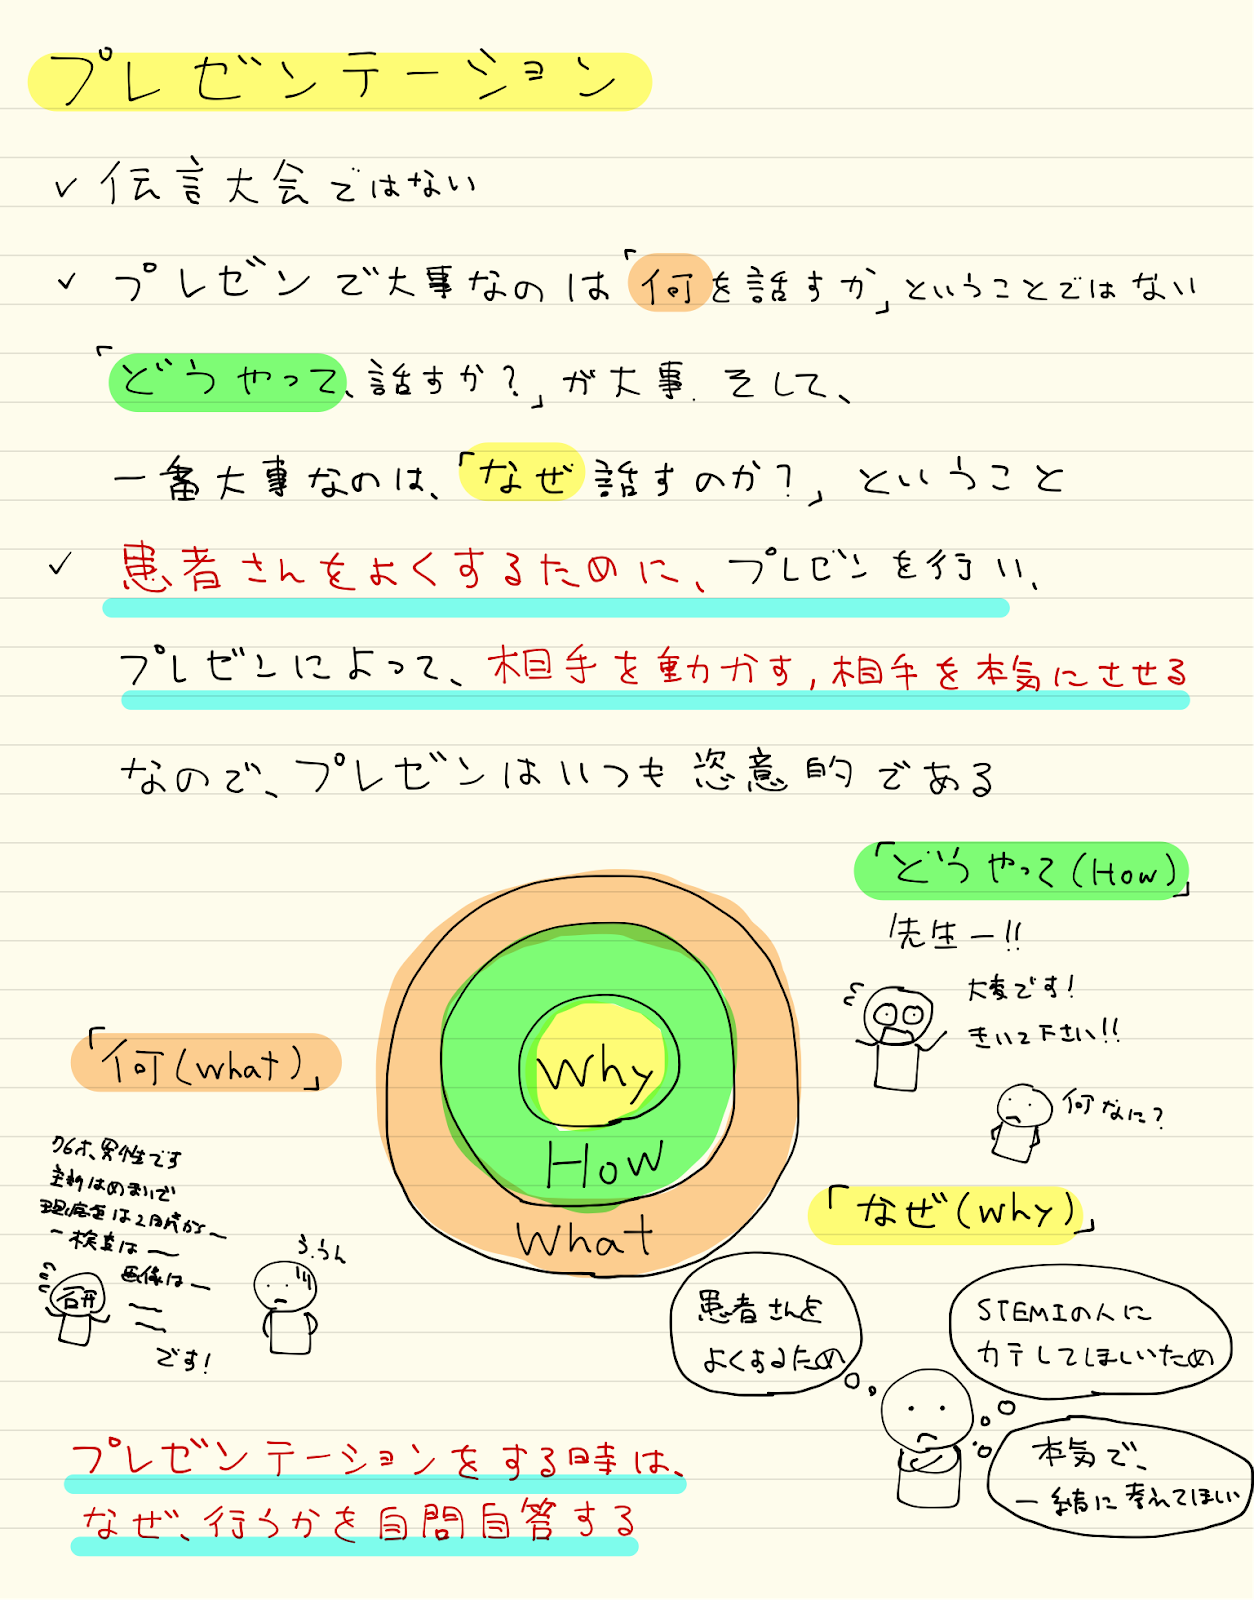 プレゼンテーション
✓ 伝言大会ではない
✓ プレゼンで大事なのは「何を話すか」ということではない
「どうやって、話すか？」が大事. そして、
一番大事なのは、「なぜ話すのか？」ということ
✓ 患者さんをよくするために、プレゼンを行い、
プレゼンによって、相手を動かす, 相手を本気にさせる
なので、プレゼンはいつも恣意的である
「どうやって(How)」
先生ー!!
大変です!
きいて下さい!!
何なに?
「何(what)」
76才、男性です
主訴はめまいで
現病歴は2日前から〜
ー検査は ー
画像は ー
です!
研
う、うん
Why
How
What
「なぜ(why)」
患者さんを
よくするため
STEMIの人に
カテしてほしいため
本気で、
一緒に考えてほしい
プレゼンテーションをする時は、
なぜ、行うかを自問自答する